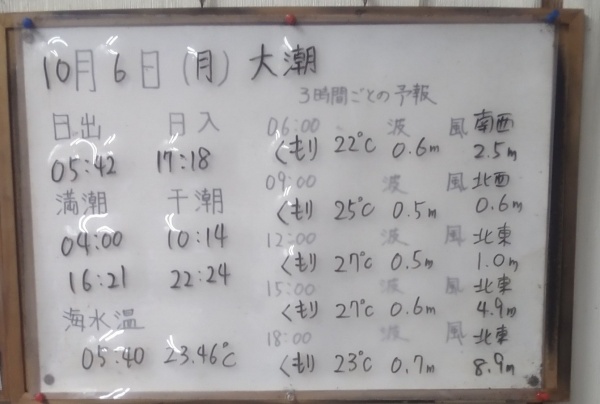 10月6日(月)大潮
日出 日入
05:42 17:18
満潮 干潮
04:00 10:14
16:21 22:24
海水温
05:40 23.46℃
3時間ごとの予報
06:00 波 風 南西
くもり 22℃ 0.6m 2.5m
09:00 波 風 北西
くもり 25℃ 0.5m 0.6m
12:00 波 風 北東
くもり 27℃ 0.5m 1.0m
15:00 波 風 北東
くもり 27℃ 0.6m 4.9m
18:00 波 風 北東
くもり 23℃ 0.7m 8.9m